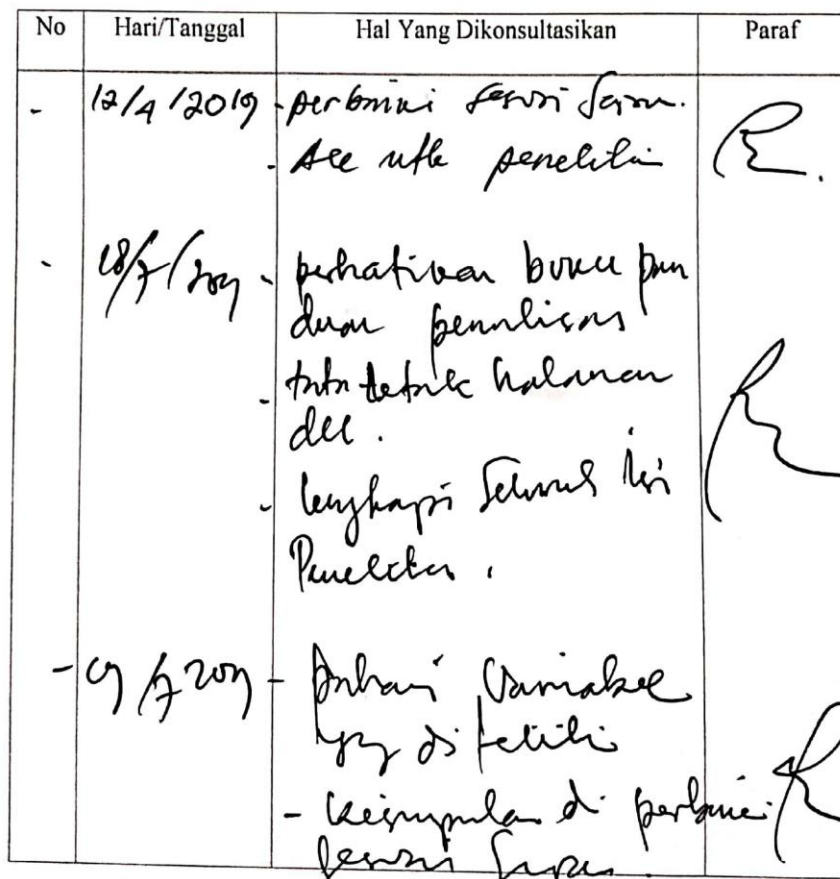 No Hari/Tanggal Hal Yang Dikonsultasikan Paraf
- 12/4/2019 - perbaiki sesuai saran.
- Acc utk penelitian
- 18/7/2019 - perhatikan buku pan
duan penulisan
- tata letak halaman
dll.
- lengkapi seluruh isi
Penelitian.
- 19/7 2019 - pahami Variabel
yg di teliti
- kesimpulan di perbaiki
sesuai saran.